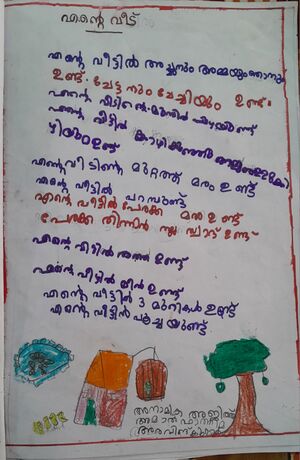 എന്റെ വീട്
എന്റെ വീട്ടിൽ അച്ഛനും അമ്മയും ഞാനും
ഉണ്ട്. ചേട്ടനും ചേച്ചിയും ഉണ്ട്.
എന്റെ വീടിന്റെ മുന്നിൽ പുഴയുണ്ട്
എന്റെ വീട്ടിൽ കോഴിക്കുഞ്ഞും
ഉണ്ട്
എന്റെ വീടിന്റെ മുറ്റത്ത് മരം ഉണ്ട്
എന്റെ വീട്ടിൽ പറമ്പുണ്ട്
എന്റെ വീട്ടിൽ പേരക്ക മരം ഉണ്ട്
പേരക്ക തിന്നാൻ നല്ല സ്വാദ് ഉണ്ട്
എന്റെ വീട്ടിൽ തത്ത ഉണ്ട്
എന്റെ വീട്ടിൽ മീൻ ഉണ്ട്
എന്റെ വീട്ടിൽ 3 മുറികൾ ഉണ്ട്
എന്റെ വീട്ടിൽ പൂച്ചയുണ്ട്
അനാമിക അജിത്ത്
അമാൻ ഫാനസ്
അരവിന്ദ്